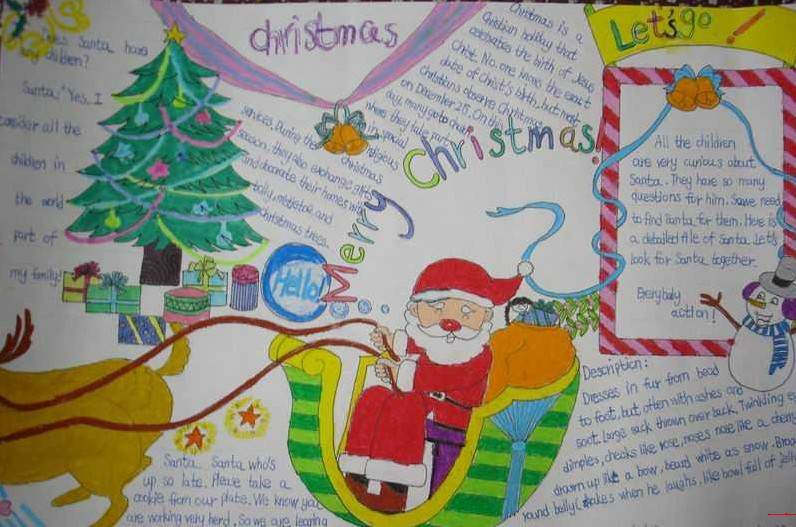 christmas
Let's go !
Does Santa have
children?
Santa: "Yes. I
consider all the
children in
the world
part of
my family!"
Christmas is a
Christian holiday that
celebrates the birth of Jesus
Christ. No one knows the exact
date of Christ's birth, but most
Christians observe Christmas
on December 25. On this
day, many go to church
where they take part
in special
religious
services. During the
Christmas
season, they also exchange gifts
and decorate their homes with
holly, mistletoe, and
Christmas trees.
Merry Christmas!
Hello!
All the children
are very curious about
Santa. They have so many
questions for him. So we need
to find Santa for them. Here is
a detailed file of Santa. Let's
look for Santa together
Everybody
action!
Description:
Dresses in fur from head
to foot, but often with ashes and
soot. Large sack thrown over back. Twinkling
dimples, cheeks like rose, noses nose like a cherry
drawn up like a bow, beard white as snow. Broad
round belly shakes when he laughs, like bowl full of jelly
Santa Santa who's
up so late. Pleave take a
cookie from our plate. We know you
are working very herd. So we are leaving